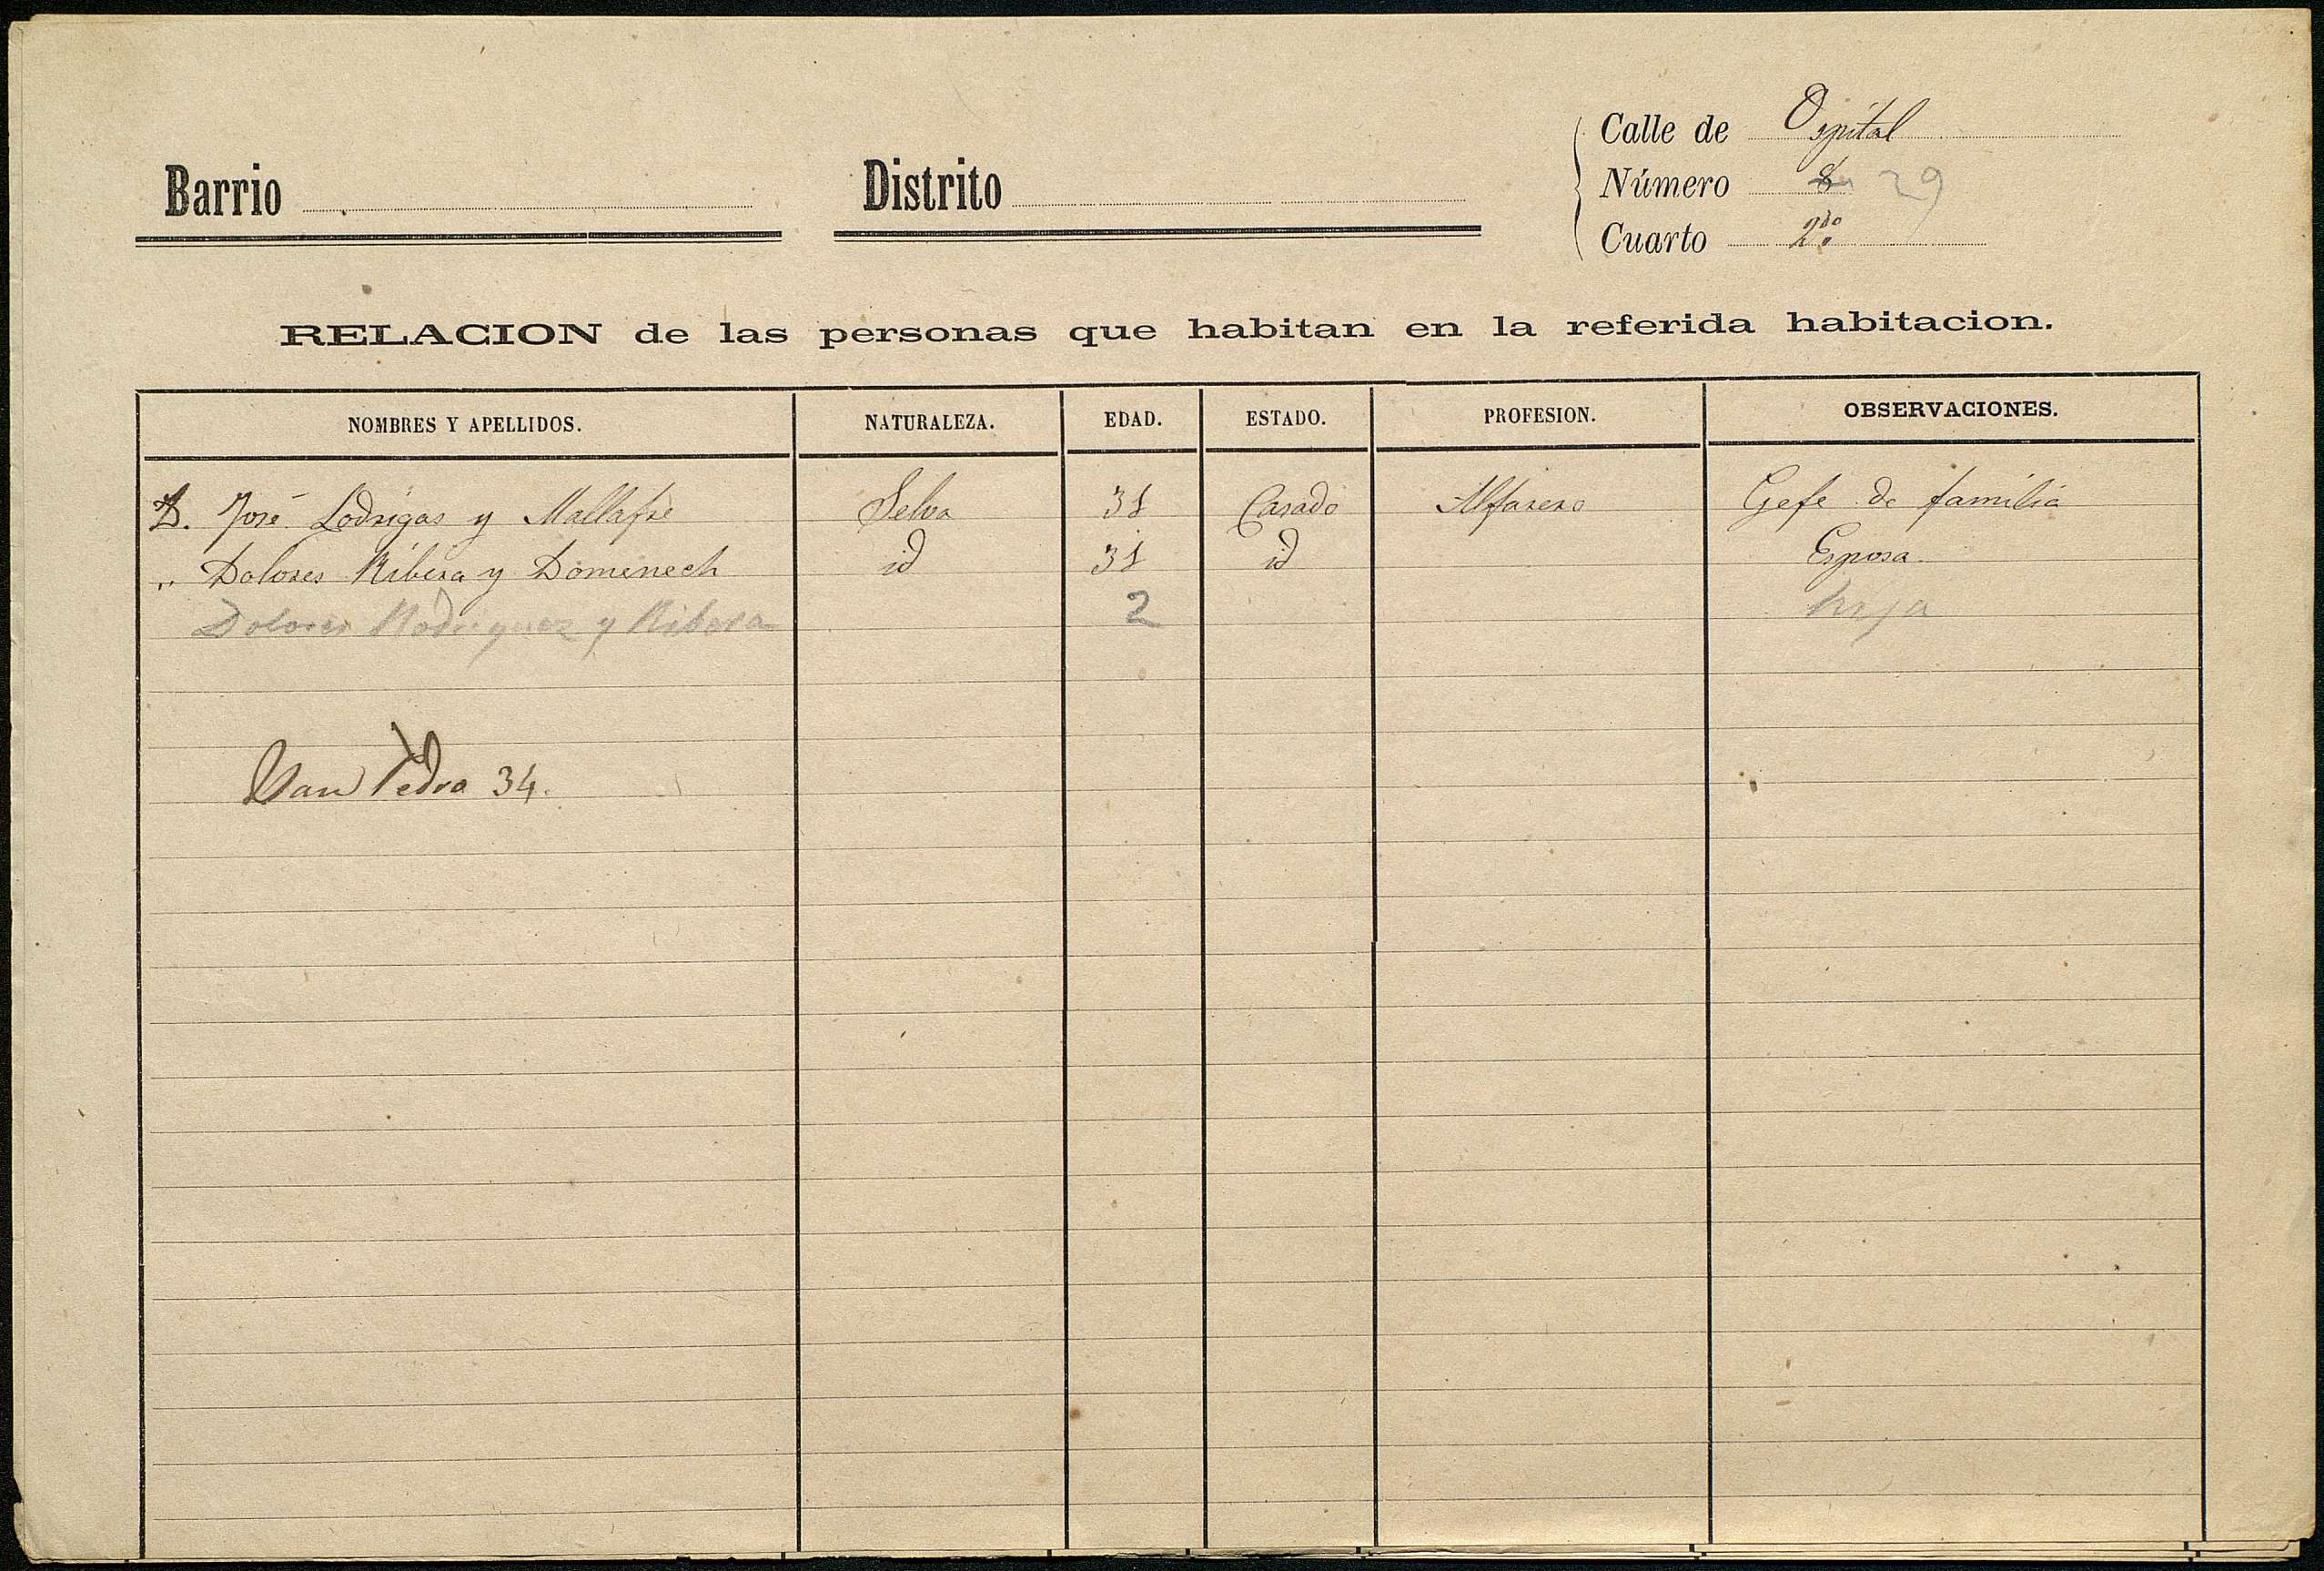 Calle de Ospital
Barrio Distrito Número 8 29
Cuarto 2do
RELACION de las personas que habitan en la referida habitacion.
NOMBRES Y APELLIDOS. NATURALEZA. EDAD. ESTADO. PROFESION. OBSERVACIONES.
D. José Lodrigas y Mallafré Selva 31 Casado Alfarero Gefe de familia
" Dolores Ribera y Domenech id 31 id Esposa
Dolores Rodriguez y Ribera 2 hija
San Pedro 34.